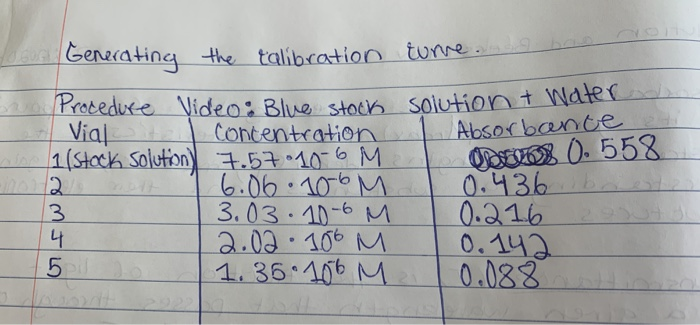 Generating the calibration curve.
Procedure Video: Blue stock solution + Water
Vial Concentration Absorbance
1 (stock solution) 7.57 · 10⁻⁶ M 0.558
2 6.06 · 10⁻⁶ M 0.436
3 3.03 · 10⁻⁶ M 0.216
4 2.02 · 10⁶ M 0.142
5 1.35 · 10⁶ M 0.088